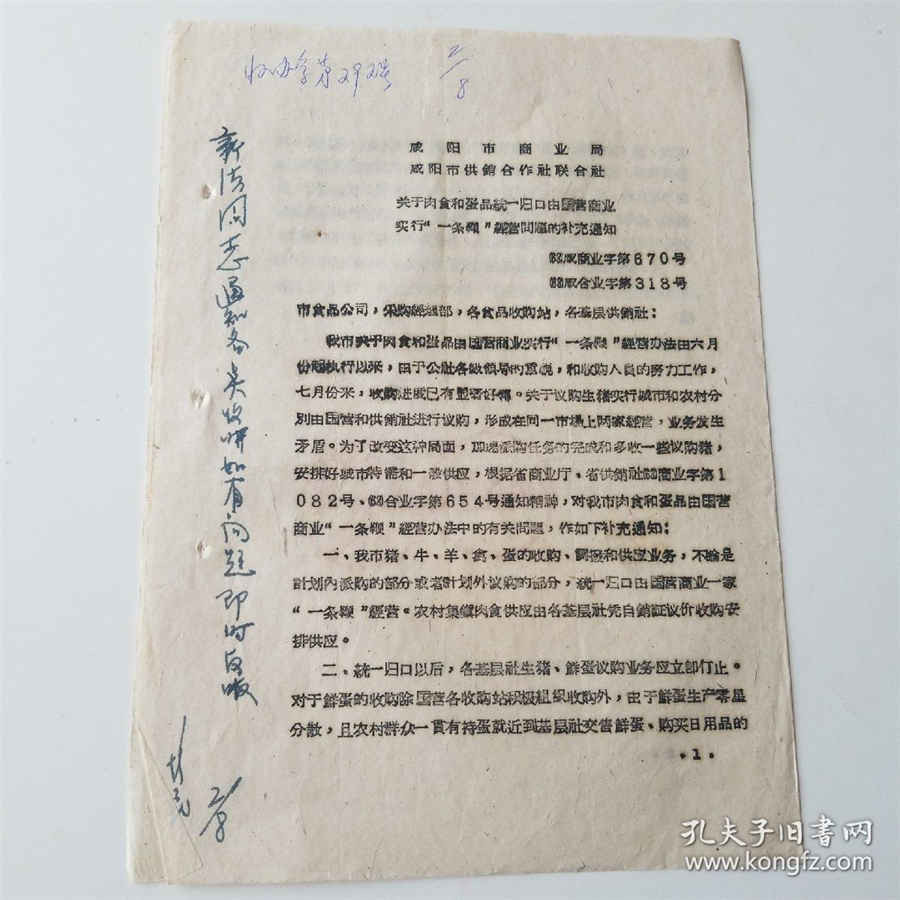 2/8
咸阳市商业局
咸阳市供銷合作社联合社
关于肉食和蛋品統一归口由国营商业
实行“一条鞭”經营問題的补充通知
咸商业字第670号
咸合业字第318号
市食品公司，采购經理部，各食品收购站，各基层供銷社：
我市关于肉食和蛋品由国营商业实行“一条鞭”經营办法由六月
份起执行以来，由于公社各級領导的重視，和收购人員的努力工作，
七月份来，收购进度已有显著好轉。关于议购生猪实行城市和农村分
別由国营和供銷社进行议购，形成在同一市場上两家經营，业务发生
矛盾。为了改变这种局面，加速派购任务的完成和多收一些议购猪，
安排好城市特需和一般供应，根据省商业厅、省供銷社商业字第1
082号、合业字第654号通知精神，对我市肉食和蛋品由国营
商业“一条鞭”經营办法中的有关問題，作如下补充通知：
一、我市猪、牛、羊、禽、蛋的收购、調撥和供应业务，不論是
計划內派购的部分或者計划外议购的部分，統一归口由国营商业一家
“一条鞭”經营。农村集鎮肉食供应由各基层社凭自銷証议价收购安
排供应。
二、統一归口以后，各基层社生猪、鮮蛋议购业务应立即停止。
对于鮮蛋的收购除国营各收购站积极組織收购外，由于鮮蛋生产零星
分散，且农村群众一貫有持蛋就近到基层社交售鮮蛋、购买日用品的
·1·
新法同志通知各点收
如有問題即时反映
孔夫子旧书网
www.kongfz.com